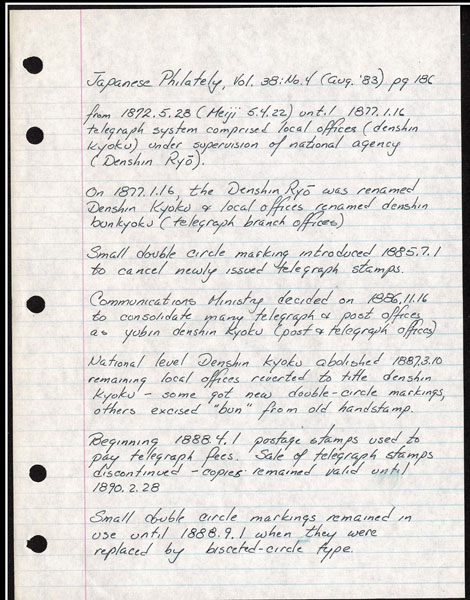 Japanese Philately, Vol. 38: No. 4 (Aug. '83) pg 186
from 1872.5.28 (Meiji 5.4.22) until 1877.1.16
telegraph system comprised local offices (denshin
kyoku) under supervision of national agency
(Denshin Ryō).
On 1877.1.16, the Denshin Ryō was renamed
Denshin Kyoku & local offices renamed denshin
bunkyoku (telegraph branch offices)
Small double circle marking introduced 1885.7.1
to cancel newly issued telegraph stamps.
Communications Ministry decided on 1886.11.16
to consolidate many telegraph & post offices
as yubin denshin kyoku (post & telegraph offices)
National level Denshin kyoku abolished 1887.3.10
remaining local offices reverted to title denshin
kyoku - some got new double-circle markings,
others excised "bun" from old handstamp.
Beginning 1888.4.1 postage stamps used to
pay telegraph fees. Sale of telegraph stamps
discontinued - copies remained valid until
1890.2.28
Small double circle markings remained in
use until 1888.9.1 when they were
replaced by bisceted-circle type.